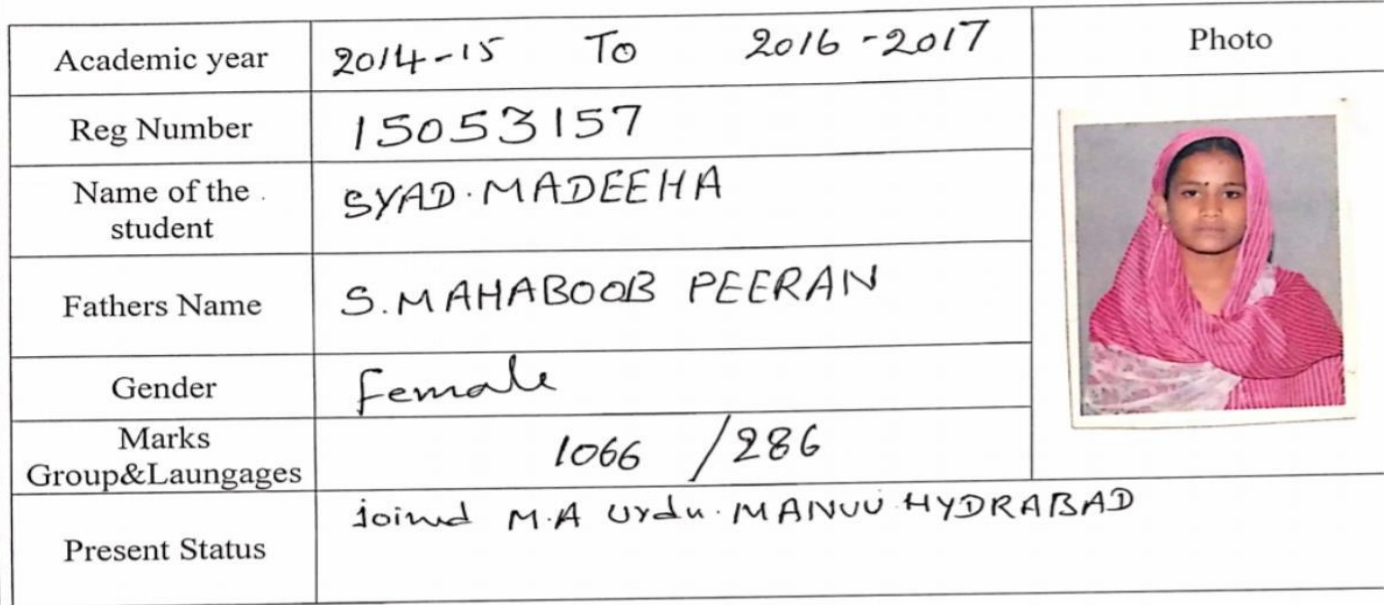 Academic year 2014-15 To 2016-2017 Photo
Reg Number 15053157
Name of the student SYAD.MADEEHA
Fathers Name S.MAHABOOB PEERAN
Gender Female
Marks Group&Laungages 1066 /286
Present Status joined M.A Urdu. MANUU HYDRABAD